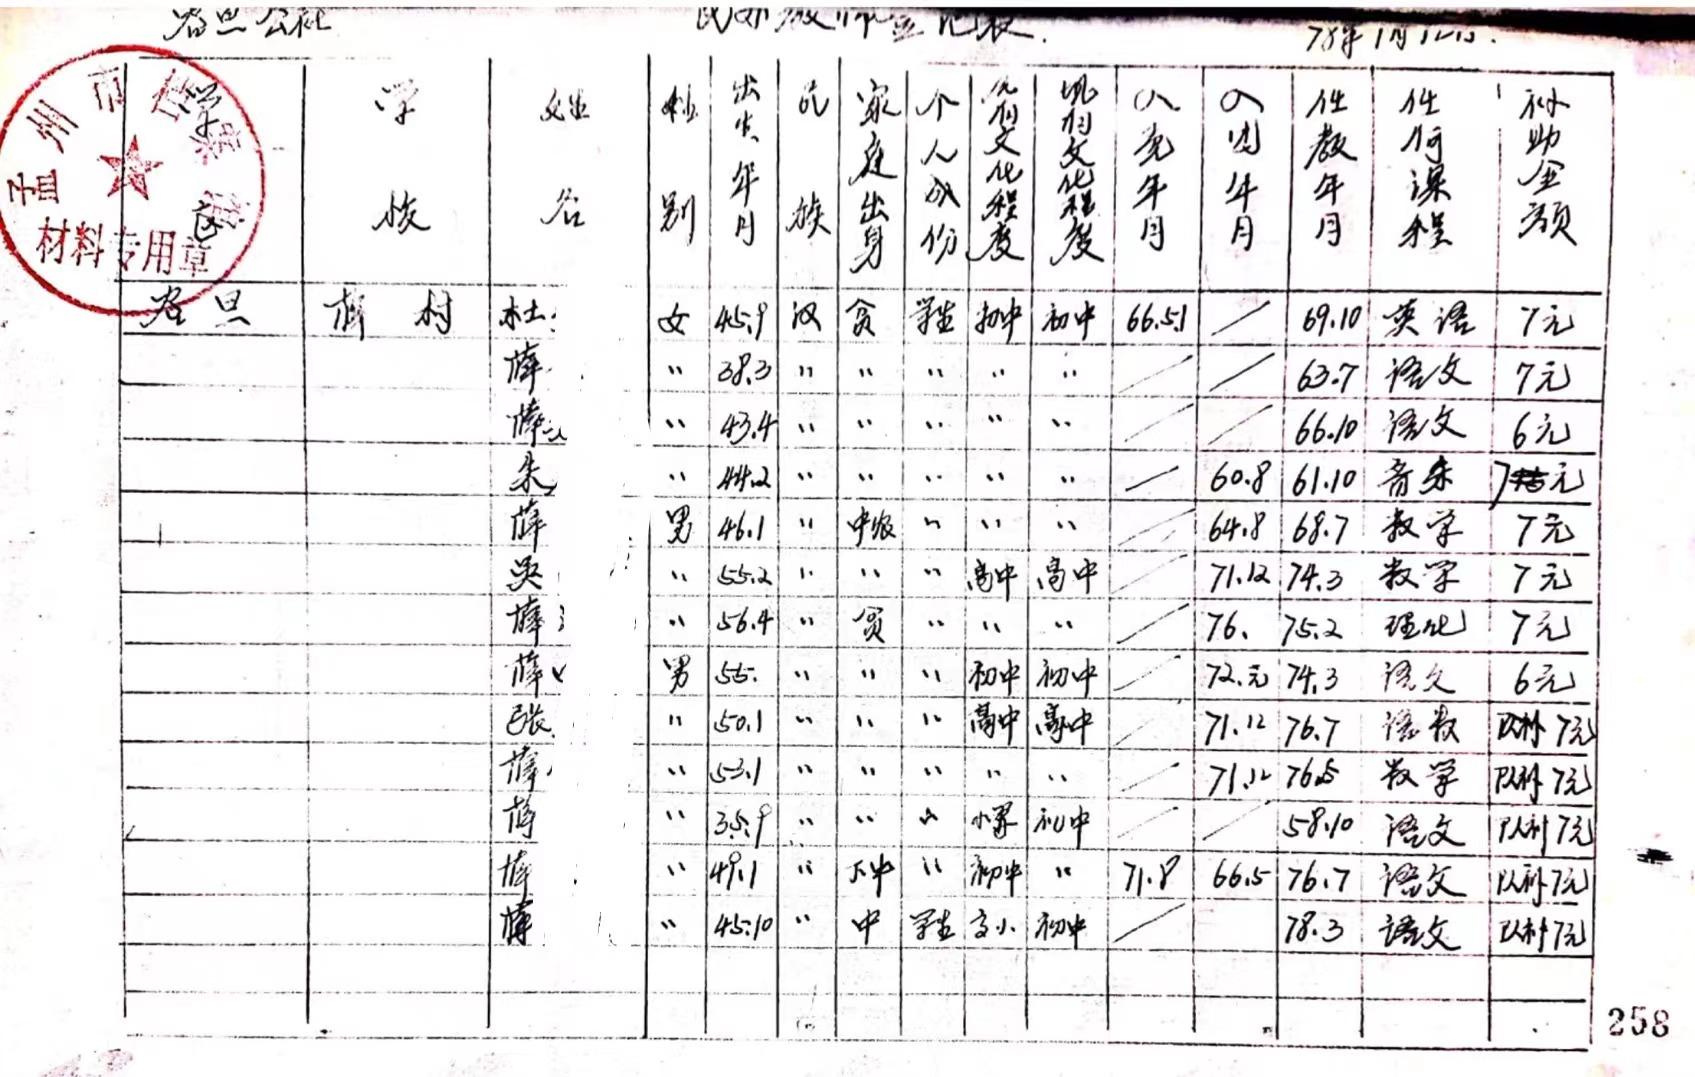 谷旦公社 民办教师登记表. 78年1月12日.
孟州市档案馆
材料专用章
学校 姓名 性别 出生年月 民族 家庭出身 个人成份 原有文化程度 现有文化程度 入党年月 入团年月 任教年月 任何课程 补助金额
谷旦 薛村 杜 女 45.9 汉 贫 学生 初中 初中 66.5.1 / 69.10 英语 7元
薛 " 38.3 " " " " " / / 63.7 语文 7元
薛 " 43.4 " " " " " / / 66.10 语文 6元
朱 " 44.2 " " " " " / 60.8 61.10 音乐 7元
薛 男 46.1 " 中农 " " " / 64.8 68.7 数学 7元
吴 " 55.2 " " " 高中 高中 / 71.12 74.3 数学 7元
薛 " 56.4 " 贫 " " " / 76. 75.2 理化 7元
薛 男 55. " " " 初中 初中 / 72.元 74.3 语文 6元
张 " 50.1 " " " 高中 高中 / 71.12 76.7 语数 队补7元
薛 " 53.1 " " " " " / 71.12 76.5 数学 队补7元
薛 " 35.9 " " " 初中 / / 58.10 语文 队补7元
薛 " 49.1 " 下中 " 初中 " 71.8 66.5 76.7 语文 队补7元
薛 " 45.10 " 中 学生 高小 初中 / 78.3 语文 队补7元
258